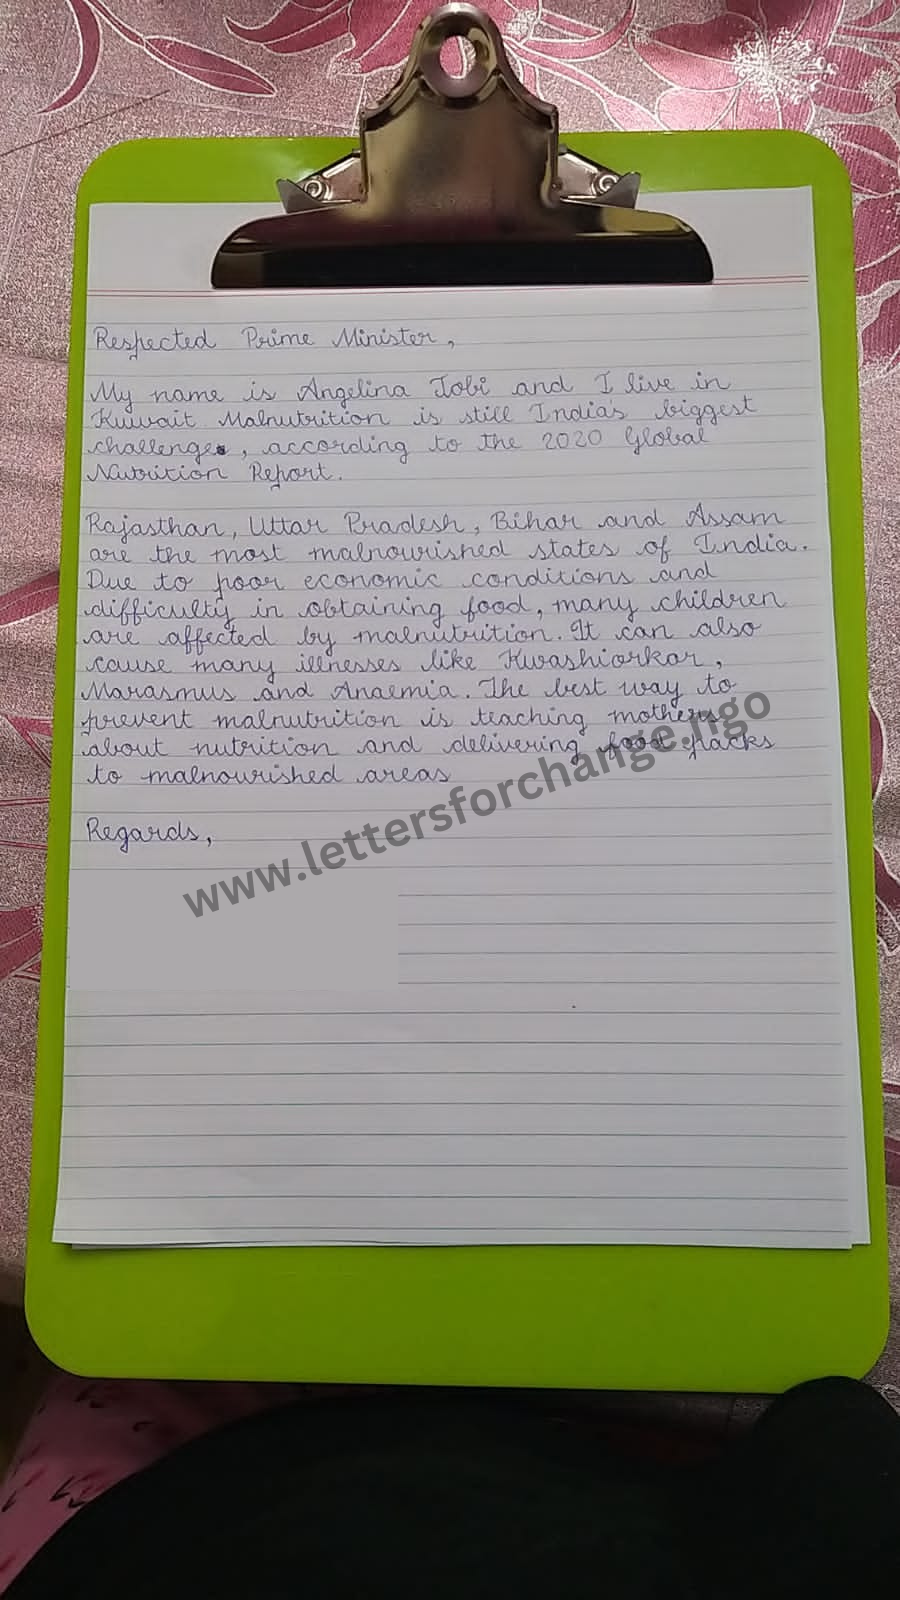 Respected Prime Minister,
My name is Angelina Tobi and I live in
Kuwait Malnutrition is still India's biggest
challenge, according to the 2020 Global
Nutrition Report.
Rajasthan, Uttar Pradesh, Bihar and Assam
are the most malnourished states of India.
Due to poor economic conditions and
difficulty in obtaining food, many children
are affected by malnutrition. It can also
cause many illnesses like Kwashiorkar,
Marasmus and Anaemia. The best way to
prevent malnutrition is teaching mothers
about nutrition and delivering food packs
to malnourished areas
Regards,
www.lettersforchange.ngo